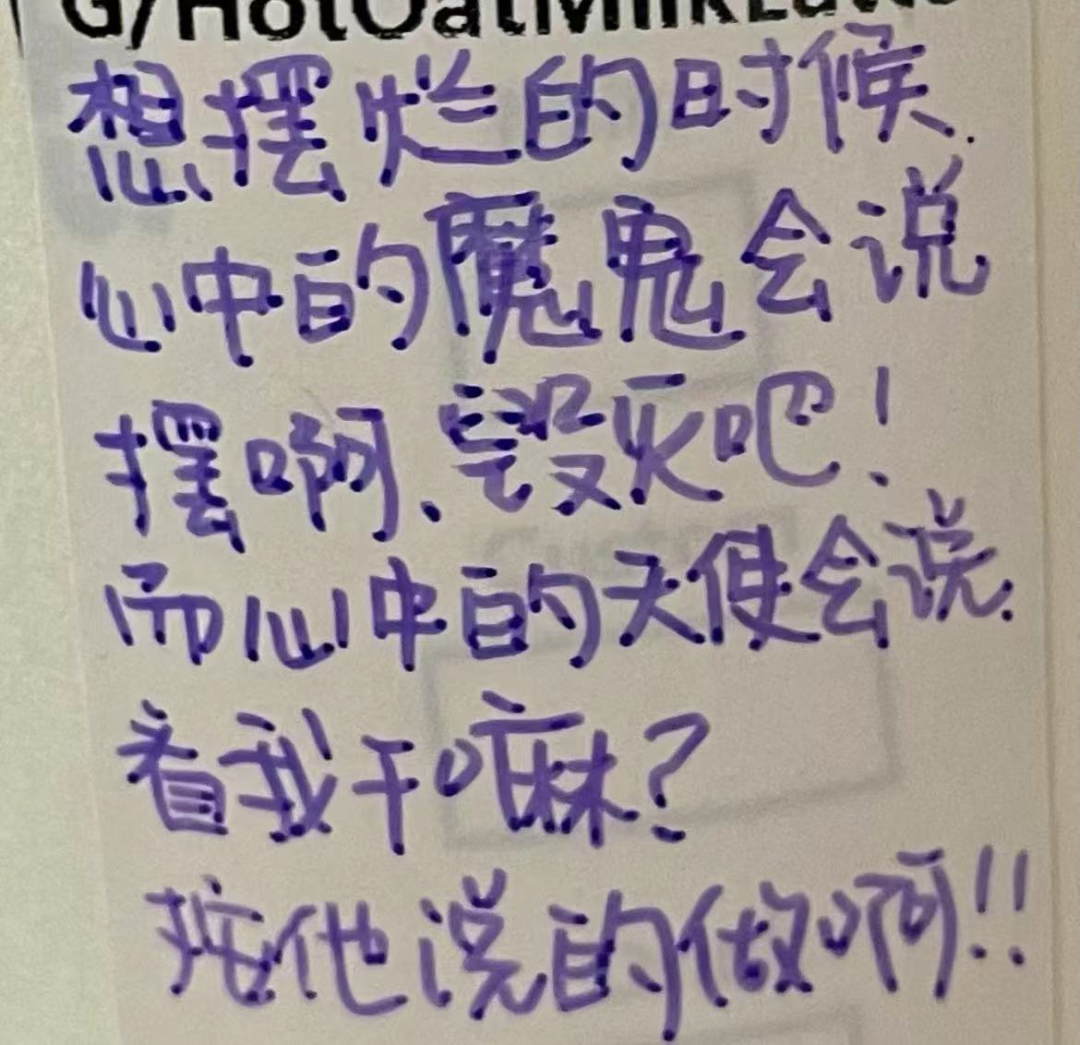 G/HotOatMilkLatte
想摆烂的时候.
心中的魔鬼会说
摆啊、毁灭吧!
而心中的天使会说.
看我干嘛?
按他说的做啊!!